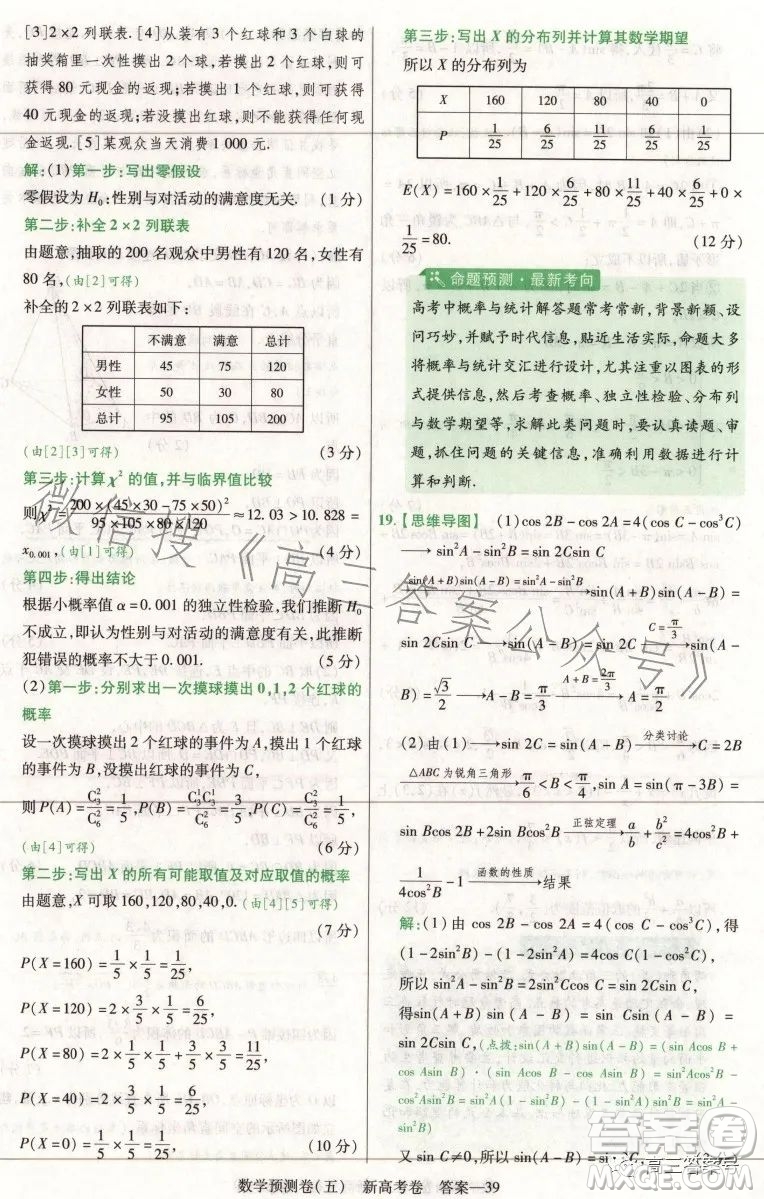 [3]2×2 列联表. [4]从装有 3 个红球和 3 个白球的
抽奖箱里一次性摸出 2 个球,若摸出 2 个红球,可获
得 80 元现金的返现;若摸出 1 个红球,则可获得
40 元现金的返现;若没摸出红球,则不能获得任何现
金返现. [5]某观众当天消费 1 000 元.
解:(1)第一步:写出零假设
零假设为 H₀:性别与对活动的满意度无关. (1 分)
第二步:补全 2×2 列联表
由题意,抽取的 200 名观众中男性有 120 名,女性有
80 名,(由[2]可得)
补全的 2×2 列联表如下:
不满意 满意 总计
男性 45 75 120
女性 50 30 80
总计 95 105 200
(由[2][3]可得) (3 分)
第三步:计算 χ² 的值,并与临界值比较
则χ²=200×(45×30-75×50)²/(95×105×80×120)≈12.03>10.828=
x₀.₀₀₁,(由[1]可得) (4 分)
第四步:得出结论
根据小概率值 α=0.001 的独立性检验,我们推断 H₀
不成立,即认为性别与对活动的满意度有关,此推断
犯错误的概率不大于 0.001. (5 分)
(2)第一步:分别求出一次摸球摸出 0,1,2 个红球的
概率
设一次摸球摸出 2 个红球的事件为 A,摸出 1 个红球
的事件为 B,没摸出红球的事件为 C,
则 P(A)=C₃²/C₆²=1/5,P(B)=C₃¹C₃¹/C₆²=3/5,P(C)=C₃²/C₆²=1/5,
(由[4]可得) (6 分)
第二步:写出 X 的所有可能取值及对应取值的概率
由题意,X 可取 160,120,80,40,0.(由[4][5]可得)
(7 分)
P(X=160)=1/5×1/5=1/25,
P(X=120)=2×1/5×3/5=6/25,
P(X=80)=2×1/5×1/5+3/5×3/5=11/25,
P(X=40)=2×3/5×1/5=6/25,
P(X=0)=1/5×1/5=1/25, (10 分)
第三步:写出 X 的分布列并计算其数学期望
所以 X 的分布列为
X 160 120 80 40 0
P 1/25 6/25 11/25 6/25 1/25
E(X)=160×1/25+120×6/25+80×11/25+40×6/25+0×
1/25=80. (12 分)
命题预测·最新考向
高考中概率与统计解答题常考常新,背景新颖、设
问巧妙,并赋予时代信息,贴近生活实际,命题大多
将概率与统计交汇进行设计,尤其注重以图表的形
式提供信息,然后考查概率、独立性检验、分布列
与数学期望等,求解此类问题时,要认真读题、审
题,抓住问题的关键信息,准确利用有关数据进行计
算和判断.
19.【思维导图】 (1)cos 2B-cos 2A=4(cos C-cos³C)
⟶sin²A-sin²B=sin 2Csin C
sin(A+B)sin(A-B)=sin²A-sin²B⟶sin(A+B)sin(A-B)=
sin 2Csin C⟶sin(A-B)=sin 2C C=π/3⟶sin(A-
B)=√3/2⟶A-B=π/3 A+B=2π/3⟶A=π/2
(2)由(1)⟶sin 2C=sin(A-B) 分类讨论⟶C=2B
△ABC为锐角三角形⟶π/6<B<π/4⟶sin A=sin(π-3B)=
sin Bcos 2B+2sin Bcos²B 正弦定理⟶a/b+b²/c²=4cos²B+
1/4cos²B-1 函数的性质⟶结果
解:(1)由 cos 2B-cos 2A=4(cos C-cos³C),得
(1-2sin²B)-(1-2sin²A)=4cos C(1-cos²C),
所以 sin²A-sin²B=2sin²Ccos C=sin 2Csin C,
得sin(A+B)sin(A-B)=sin Csin(A-B)=
sin 2Csin C,(点拨:sin(A+B)sin(A-B)=(sin Acos B+
cos Asin B)·(sin Acos B-cos Asin B)=sin²Acos²B-
cos²Asin²B=sin²A(1-sin²B)-(1-sin²A)sin²B=sin²A-
sin²B)
又 sin C≠0,所以 sin(A-B)=sin 2C.
数学预测卷(五) 新高考卷 答案—39
微信搜《高三答案公众号》
高三答案号
答案圈
MXQE.COM